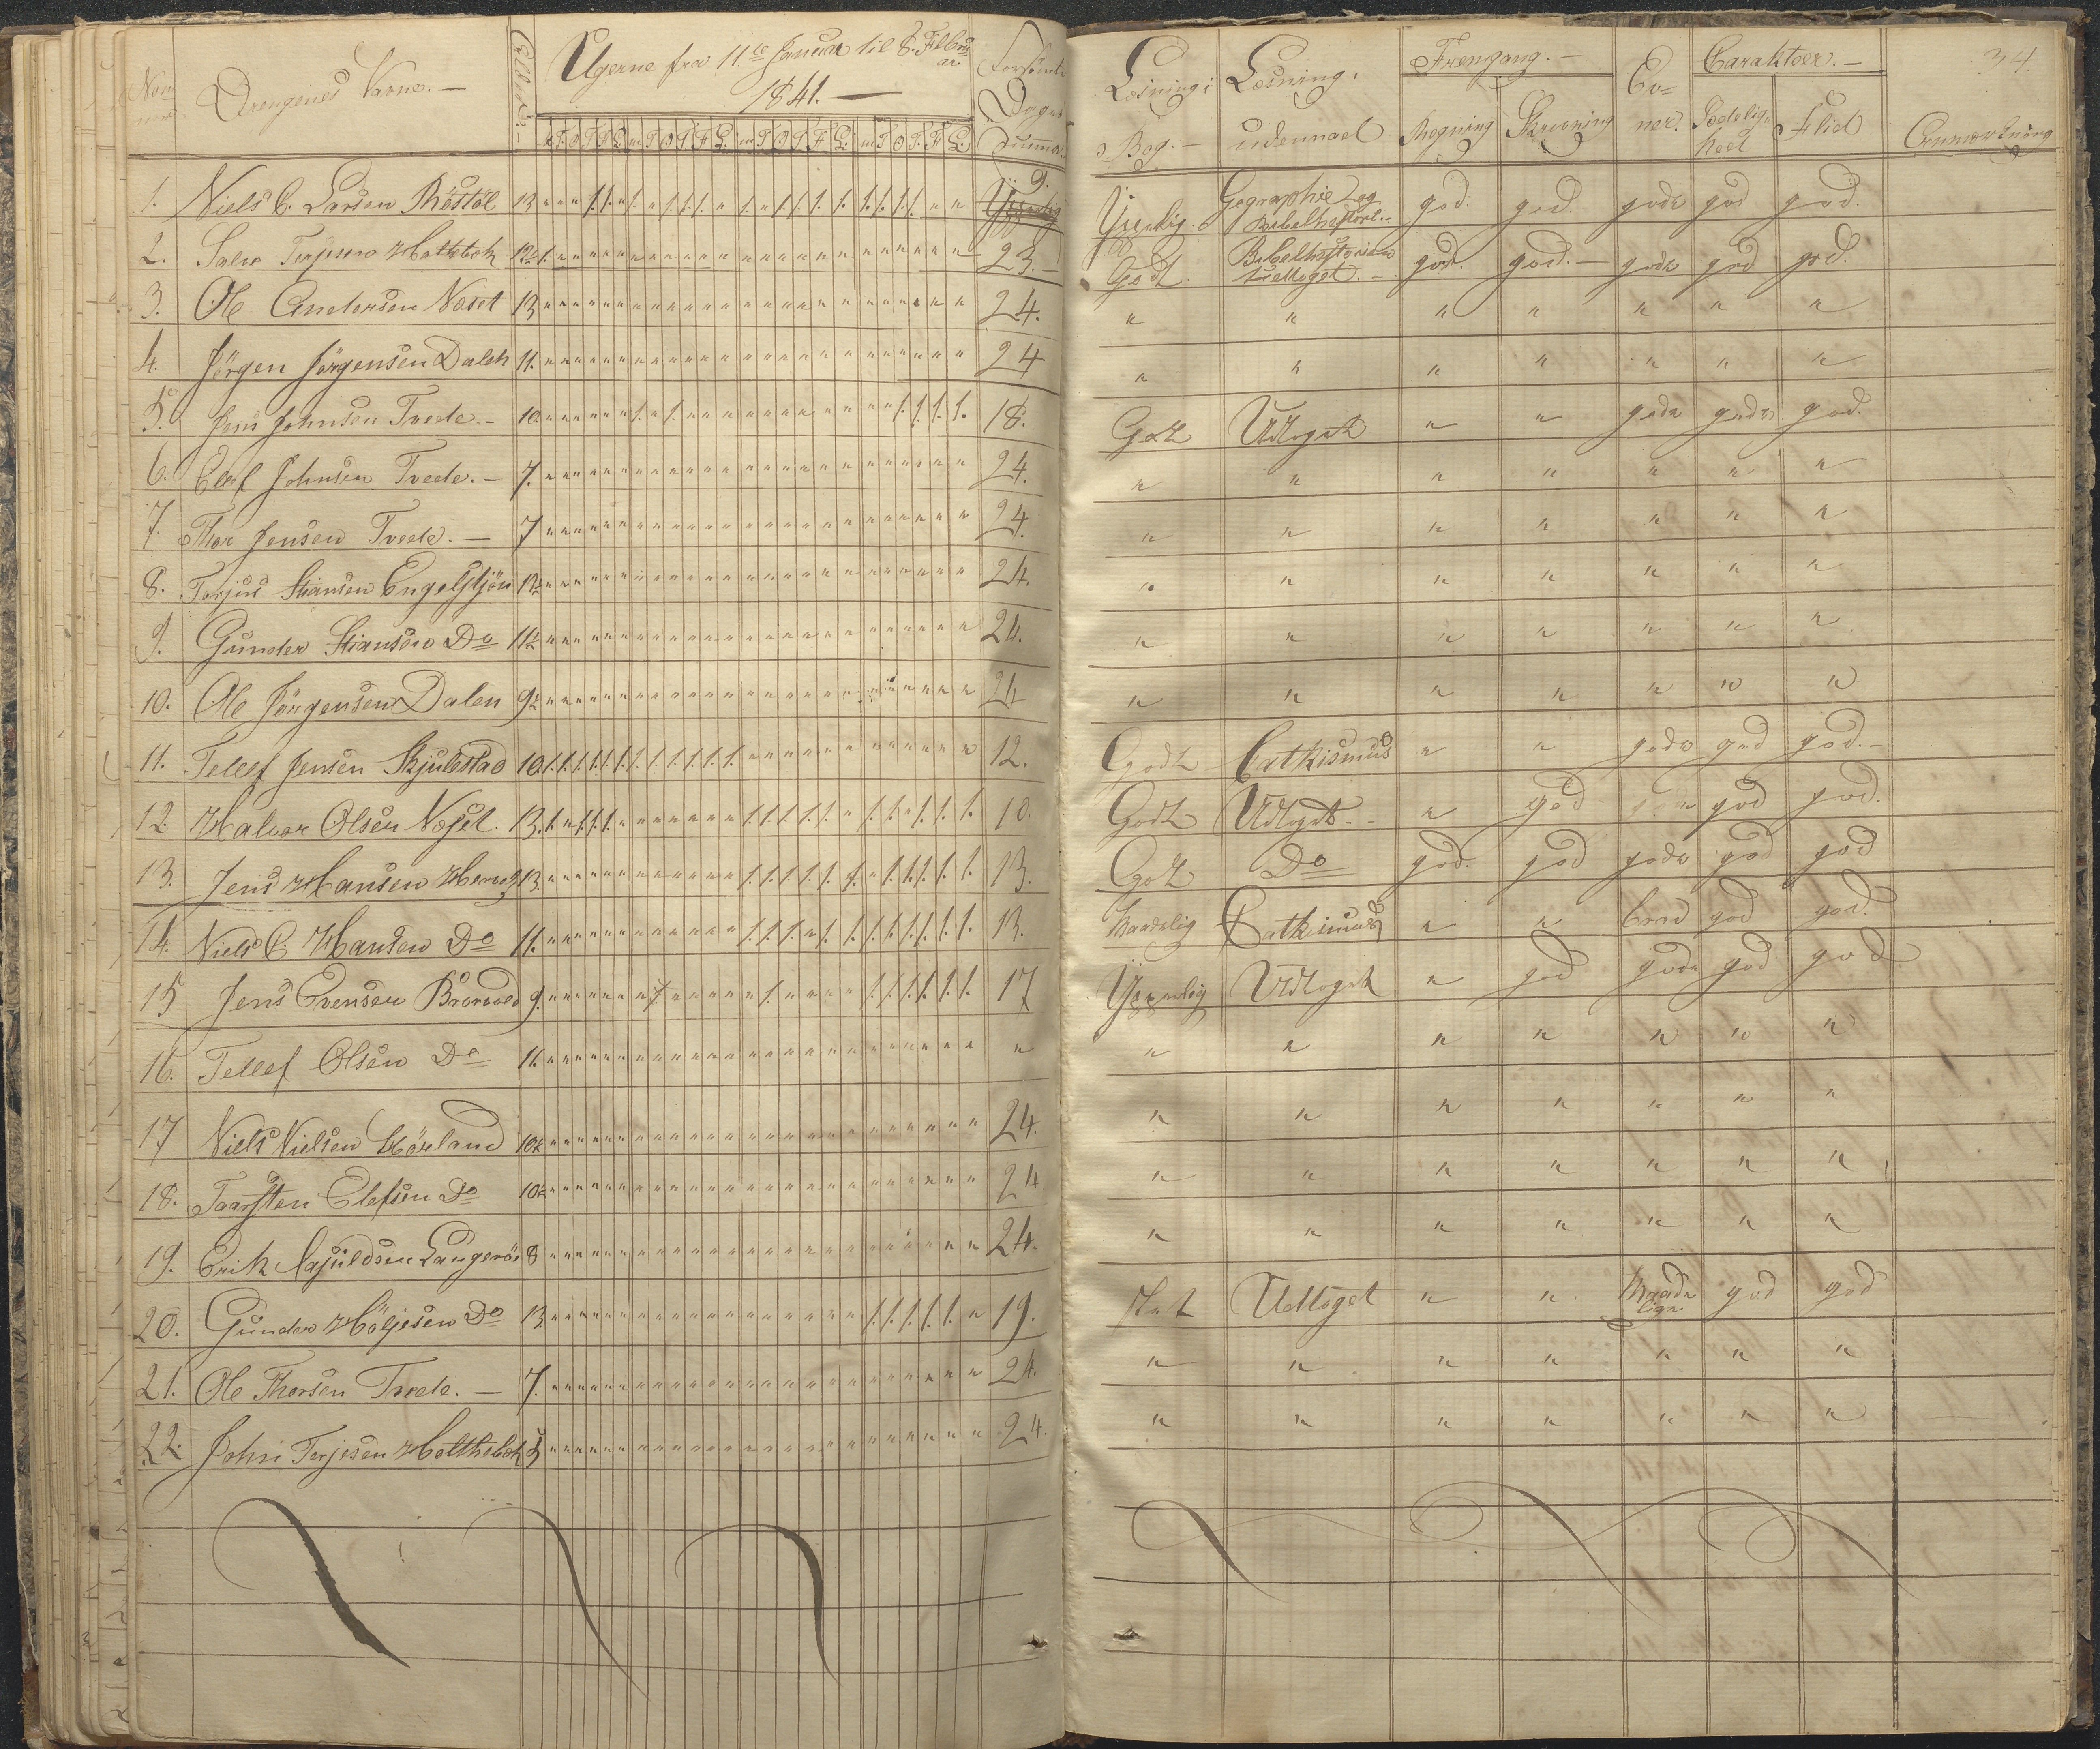 Ugerne fra 11.te Januar til 8. Februar.
1841. —
Num̅er. Drengenes Navne. — Alder. Forsømte Dages Summa.
M T O T F L M T O T F L M T O T F L M T O T F L
1. Niels C. Larsen Röstöl 13 9.
2. Salve Terjesen Holtebek 12½ 23. —
3. Ole Andersen Næset 13 24.
4. Jörgen Jörgensen Dalen 11. 24
5. Jens Johnsen Tvede. — 10. 18.
6. Elef Johnsen Tvede. — 7. 24.
7. Thor Jensen Tvede. — 7 24.
8. Terjus Stiansen Engelstjön 13½ 24.
9. Gunder Stiansen Do 11½ 24.
10. Ole Jörgensen Dalen 9½ 24
11. Tellef Jensen Skjulestad 10 12.
12 Halvor Olsen Næset. 13. 10.
13. Jens Hansen 13. 13.
14. Niels C. Hansen Do 11. 13.
15 Jens Evensen Brorvold 9. 17
16. Tellef Olsen Do 11. "
17 Niels Nielsen Hörland 10½ 24.
18. Taarsten Elefsen Do 10½ 24
19. Erik Langerøe 8 24.
20. Gunder Höljesen Do 13. 19.
21. Ole Thorsen Tvede. — 7. 24.
22. John Terjesen Holthebek 24.
34.
Læsning i Bog. — Læsning udenad Fremgang. — Regning Skrivning Evner. Carakteer. — Sædelighed Flid Anmærkning
Ypperlig. Geographie og Bibelhistori.. god. god. gode god god.
Godt. Bibelhistorien udtoget. — god. god. — gode god god.
" " " " " " "
" " " " " " "
Godt Udtoget " " gode gode god.
" " " " " " "
" " " " " " "
" " " " " " "
" " " " " " "
" " " " " " "
Godt Catkismus " " gode god god. —
Godt Udtoget. - " god gode god god.
Godt Do god. god gode god god
Maadelig Catkismus " " god god.
Ypperlig Udtoget " god gode god god
" " " " " " "
" " " " " " "
" " " " " " "
" " " " " " "
Udtoget " " Maadelige god god
" " " " " " "
" " " " " " "